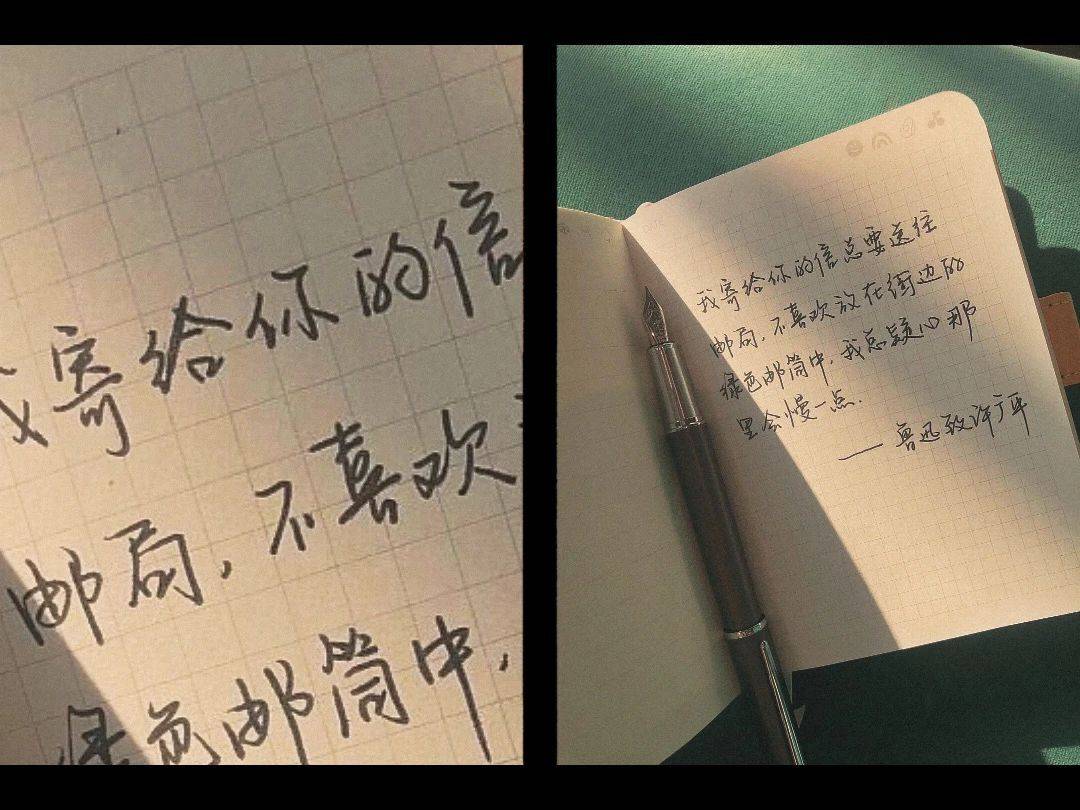 我寄给你的信
邮局,不喜欢
绿色邮筒中,
我寄给你的信总要送往
邮局,不喜欢放在街边的
绿色邮筒中,我总疑心那
里会慢一点.
——鲁迅致许广平